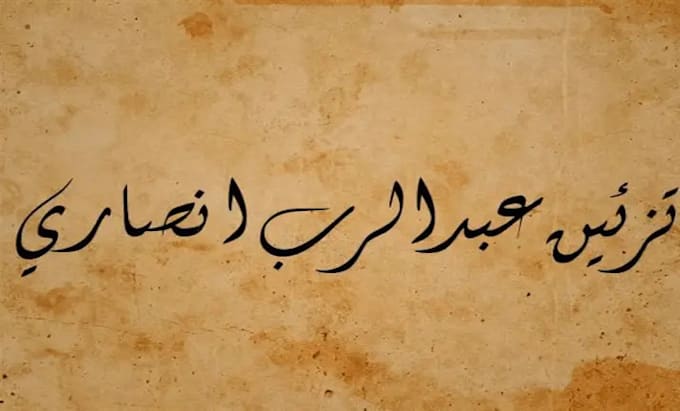 تزئین عبدالرب انصاري